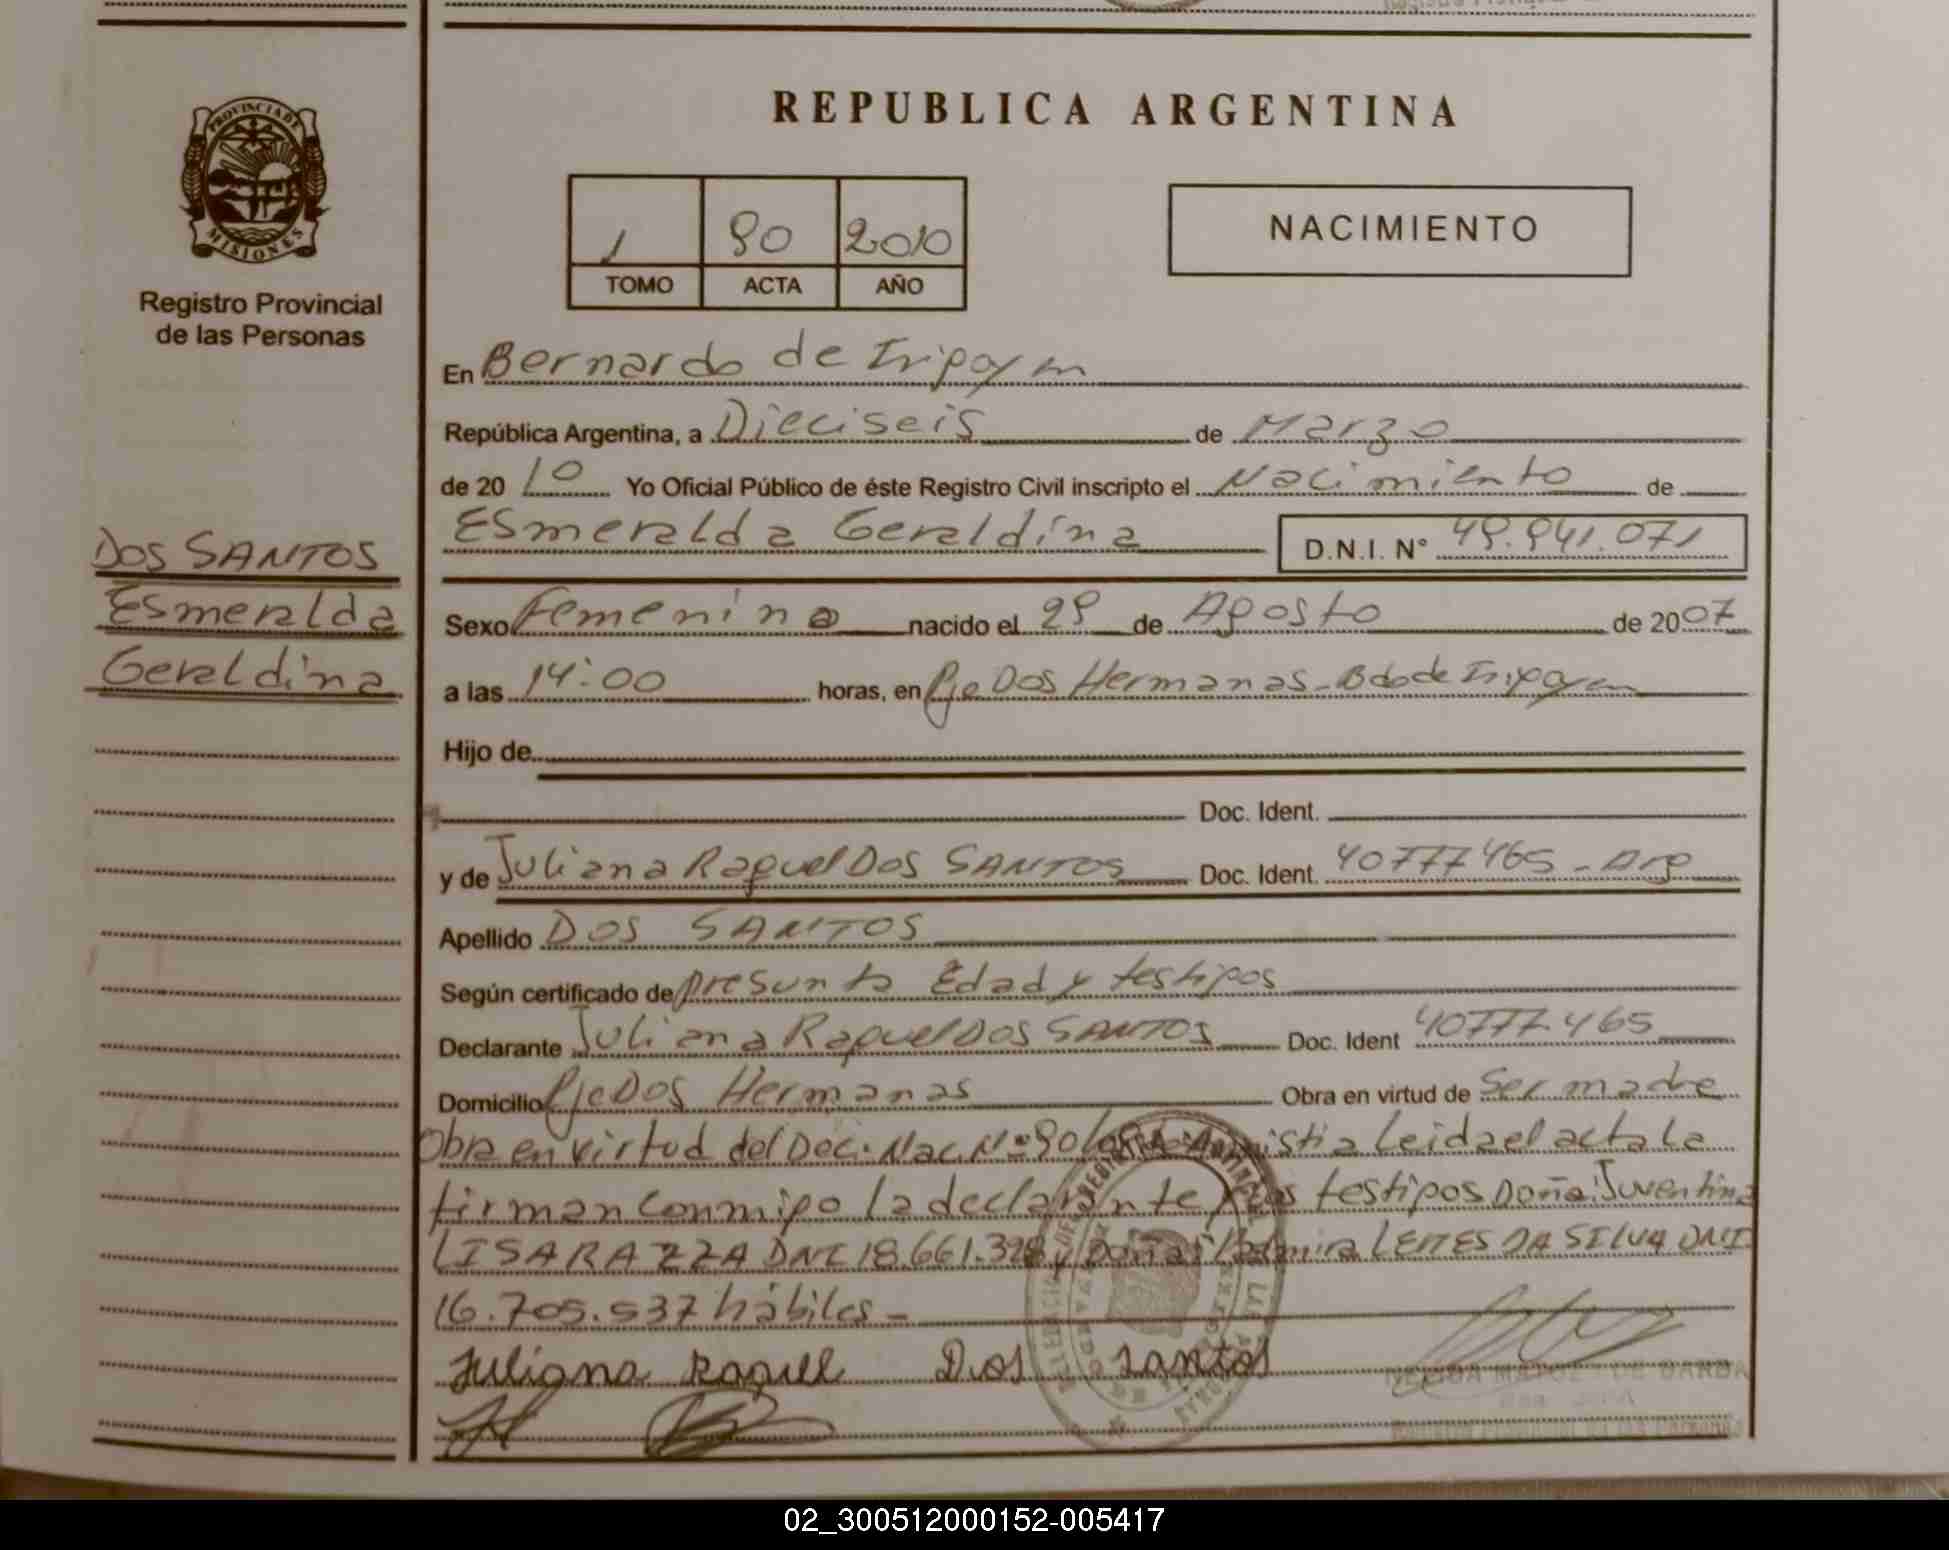 REPUBLICA ARGENTINA
PROVINCIA DE MISIONES
Registro Provincial
de las Personas
1 90 2010
TOMO ACTA AÑO
NACIMIENTO
En Bernardo de Irigoyen
República Argentina, a Dieciseis de Marzo
de 20 10 Yo Oficial Público de éste Registro Civil inscripto el Nacimiento de
Esmeralda Geraldina D.N.I. N° 49.941.071
DOS SANTOS
Esmeralda
Geraldina
Sexo Femenino nacido el 29 de Agosto de 2007
a las 14:00 horas, en Pje Dos Hermanas - Bdo de Irigoyen
Hijo de
Doc. Ident.
y de Juliana Raquel DOS SANTOS Doc. Ident. 40777465 - Arg
Apellido DOS SANTOS
Según certificado de presunta Edad y testigos
Declarante Juliana Raquel DOS SANTOS Doc. Ident 40777465
Domicilio Pje Dos Hermanas Obra en virtud de Ser madre
Obra en virtud del Dec. Nac. Nº 90/09 Amnistia Leida el acta La
firman conmigo la declarante y los testigos Doña: Juventina
LISARAZZA DNI 18.661.328 y Doña: LEITES DA SILVA DNI
16.705.537 hábiles -
Juliana Raquel Dos Santos
02_300512000152-005417